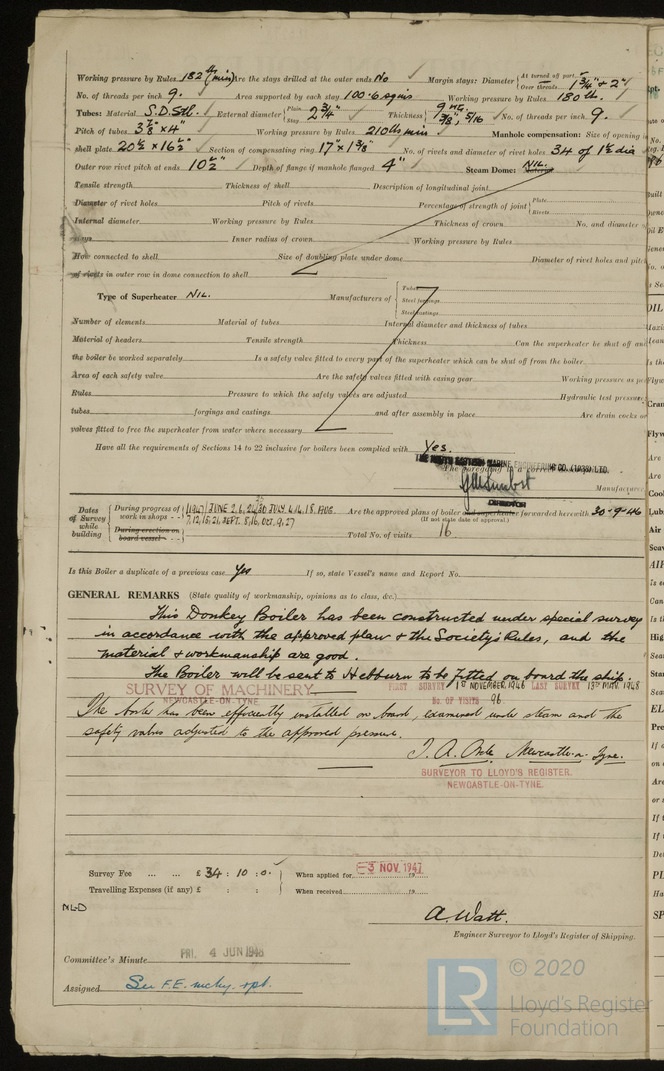 Working pressure by Rules 182 lb (min) Are the stays drilled at the outer ends No Margin stays: Diameter { At turned off part, or Over threads 1 3/4" + 2"
No. of threads per inch 9. Area supported by each stay 100.6 sq ins Working pressure by Rules 180 lb.
Tubes: Material S.D. Stl. External diameter { Plain Stay 2 3/4" Thickness { 9 WG. 3/8", 5/16 No. of threads per inch 9.
Pitch of tubes 3 7/8" x 4" Working pressure by Rules 210 lbs min Manhole compensation: Size of opening in
shell plate 20 1/2 x 16 1/2" Section of compensating ring 17" x 1 3/8" No. of rivets and diameter of rivet holes 34 of 1 1/2 dia
Outer row rivet pitch at ends 10 1/2" Depth of flange if manhole flanged 4" Steam Dome: Material NIL.
Tensile strength Thickness of shell Description of longitudinal joint
Diameter of rivet holes Pitch of rivets Percentage of strength of joint { Plate Rivets
Internal diameter Working pressure by Rules Thickness of crown No. and diameter
stays Inner radius of crown Working pressure by Rules
How connected to shell Size of doubling plate under dome Diameter of rivet holes and pitch
of rivets in outer row in dome connection to shell
Type of Superheater NIL. Manufacturers of { Tubes Steel forgings Steel castings
Number of elements Material of tubes Internal diameter and thickness of tubes
Material of headers Tensile strength Thickness Can the superheater be shut off and
the boiler be worked separately Is a safety valve fitted to every part of the superheater which can be shut off from the boiler
Area of each safety valve Are the safety valves fitted with easing gear Working pressure as per
Rules Pressure to which the safety valves are adjusted Hydraulic test pressure
tubes forgings and castings and after assembly in place Are drain cocks or
valves fitted to free the superheater from water where necessary
Have all the requirements of Sections 14 to 22 inclusive for boilers been complied with Yes.
THE NORTH EASTERN MARINE ENGINEERING CO. (1938) LTD.
The foregoing is a correct
DIRECTOR
Manufacturer
Dates of Survey while building { During progress of work in shops - - 1947 JUNE 2, 6, 24, 30 JULY 4, 14, 18, AUG. 7, 12, 15, 21, SEPT. 8, 16, OCT. 9, 27
During erection on board vessel - - -
Are the approved plans of boiler and superheater forwarded herewith 30-9-46
(If not state date of approval.)
Total No. of visits 16
Is this Boiler a duplicate of a previous case Yes If so, state Vessel's name and Report No.
GENERAL REMARKS (State quality of workmanship, opinions as to class, &c.)
This Donkey Boiler has been constructed under special survey
in accordance with the approved plan & the Society's Rules, and the
material & workmanship are good.
The Boiler will be sent to Hebburn to be fitted on board the ship.
SURVEY OF MACHINERY NEWCASTLE-ON-TYNE
FIRST SURVEY 1ST NOVEMBER 1946 LAST SURVEY 13TH MAR. 1948
No. OF VISITS 96.
The boiler has been efficiently installed on board, examined under steam and the
safety valves adjusted to the approved pressure.
Newcastle-on-Tyne.
SURVEYOR TO LLOYD'S REGISTER.
NEWCASTLE-ON-TYNE.
Survey Fee ... ... £ 34 : 10 : 0. When applied for -3 NOV. 1947 19
Travelling Expenses (if any) £ : : When received 19
NLD
A. Watt.
Engineer Surveyor to Lloyd's Register of Shipping.
Committee's Minute FRI. 4 JUN 1948
Assigned See F.E. mchy. rpt.
LR © 2020
Lloyd's Register
Foundation